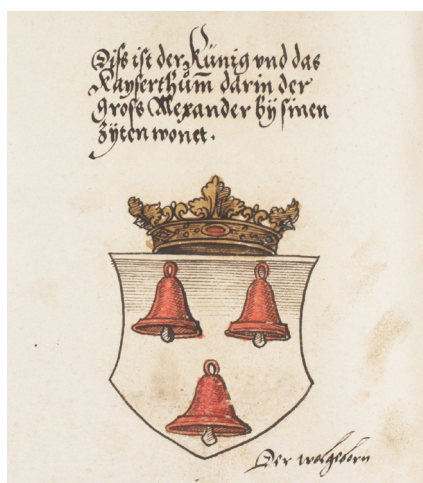 Diss ist der Künig vnd das
Kayserthům̅ darin der
gross Alexander by sinen
zÿten wonet.
Der wolgeborn